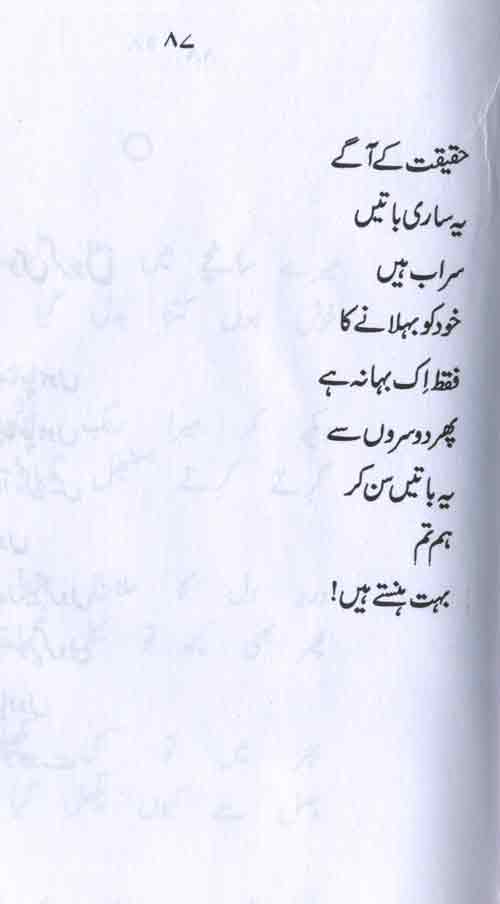 ۸۷
حقیقت کے آگے
یہ ساری باتیں
سراب ہیں
خود کو بہلانے کا
فقط اِک بہانہ ہے
پھر دوسروں سے
یہ باتیں سن کر
ہم تم
بہت ہنستے ہیں!